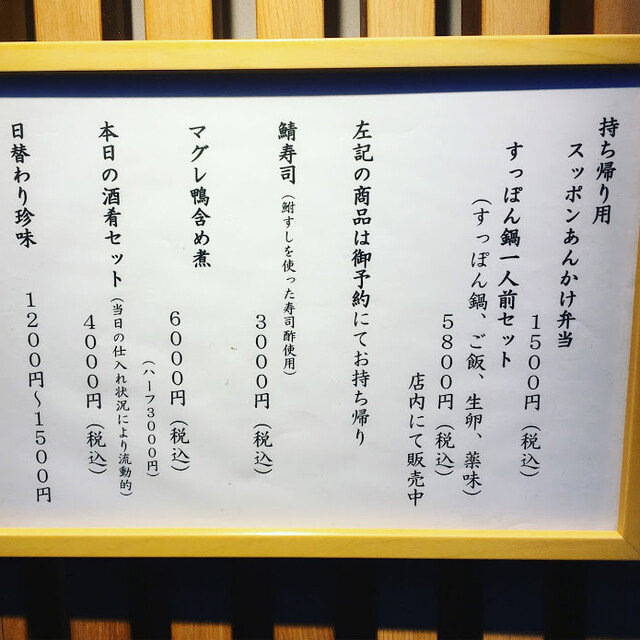 持ち帰り用
スッポンあんかけ弁当
1500円（税込）
すっぽん鍋一人前セット
（すっぽん鍋、ご飯、生卵、薬味）
5800円（税込）
店内にて販売中
左記の商品は御予約にてお持ち帰り
鯖寿司（鮒すしを使った寿司酢使用）
3000円（税込）
マグレ鴨含め煮
6000円（税込）
（ハーフ3000円）
本日の酒肴セット（当日の仕入れ状況により流動的）
4000円（税込）
日替わり珍味
1200円〜1500円